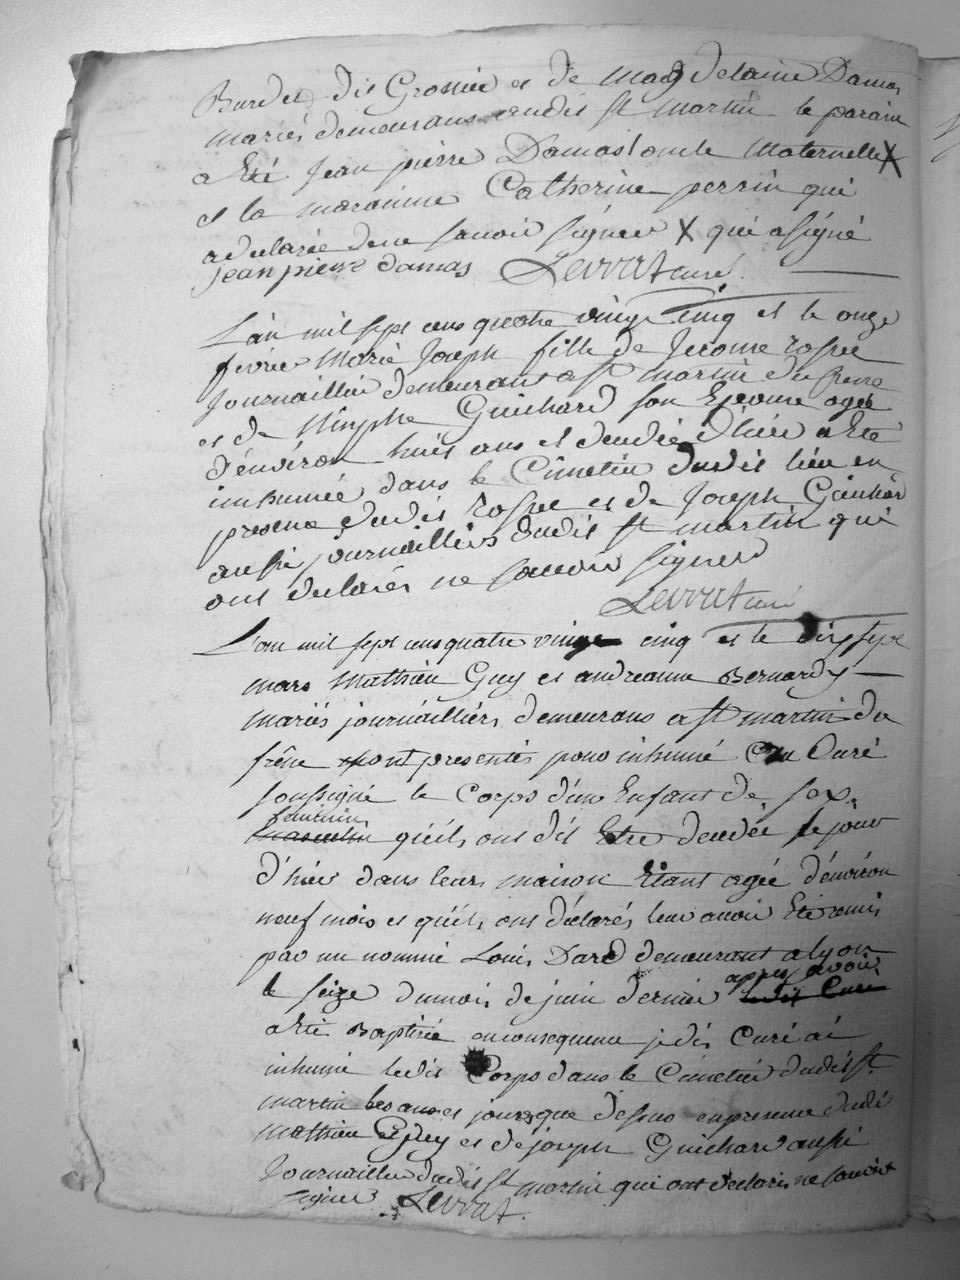 Burdet dit Grosset et de Magdelaine Damas
mariés demeurans audit st martin le parain
a Eté Jean pierre Damas tante Maternelle X
et la maranine Catherine perrin qui
a declarée de ne savoir signer X qui a signé
jean pierre damas Levrat curé
L'an mil sept cens quatre vingt cinq et le onze
fevrier Marie Joseph fille de Jerome rosset
Journaillier demeurant a st martin du frene
et de Nimphe Guichard son Epouse agée
d'environ huit ans et decedée d'hier a Eté
inhumée dans le Cimetier dudit lieu en
presence dudit rosset et de Joseph Guichard
aussi journailliers dudit st martin qui
ont declarés ne savoir signer
Levrat curé
L'an mil sept cens quatre vingt cinq et le dix sept
mars Mathieu Guy et andreanne Bernardy
mariés journailliers demeurans a st martin du
frêne mont presentés pour inhumé Curé
soussigné le Corps d'un Enfant de sexe
feminin
masculin qu'ils ont dit Etre decedée le jour
d'hier dans leurs maison Etant agée d'environ
neuf mois et qu'ils ont déclarés leur avoir Eté remis
par un nommé Louis Dard demeurant a lyon
le seize du mois de juin dernier apres avoir
ledit Curé
a Eté Baptisée en consequence je dit Curé ai
inhumé ledit Corps dans le Cimetier dudit st
martin les ans et jours que dessus en presence dudit
Mathieu Guy et de joseph Guichard aussi
Journaillier dudit st martin qui ont declarés ne savoir
signer Levrat.